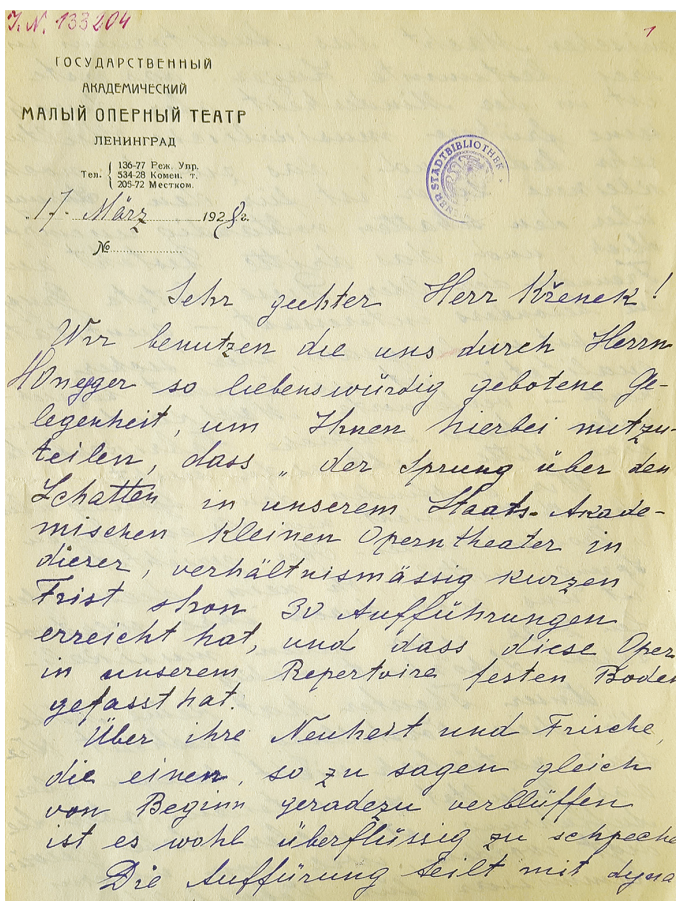 I. N. 133204
1
ГОСУДАРСТВЕННЫЙ
АКАДЕМИЧЕСКИЙ
МАЛЫЙ ОПЕРНЫЙ ТЕАТР
ЛЕНИНГРАД
Тел. { 136-77 Реж. Упр.
534-28 Комен. т.
205-72 Местком.
NER STADTBIBLIOTHEK
17. März 1928 г.
№
Sehr geehter Herr Křenek!
Wir benutzen die uns durch Herrn
Honegger so liebenswürdig gebotene Ge-
legenheit, um Ihnen hierbei mitzu-
teilen, dass „der Sprung über den
Schatten in unserem Staats-Akade-
mischen Kleinen Operntheater in
dieser, verhältnismässig kurzen
Frist schon 30 Aufführungen
erreicht hat, und dass diese Oper
in unserem Repertoire festen Boden
gefasst hat.
Über ihre Neuheit und Frische,
die einen, so zu sagen gleich
von Beginn geradezu verblüffen
ist es wohl überflüssig zu schpeche
Die Auffürung teilt mit dyna